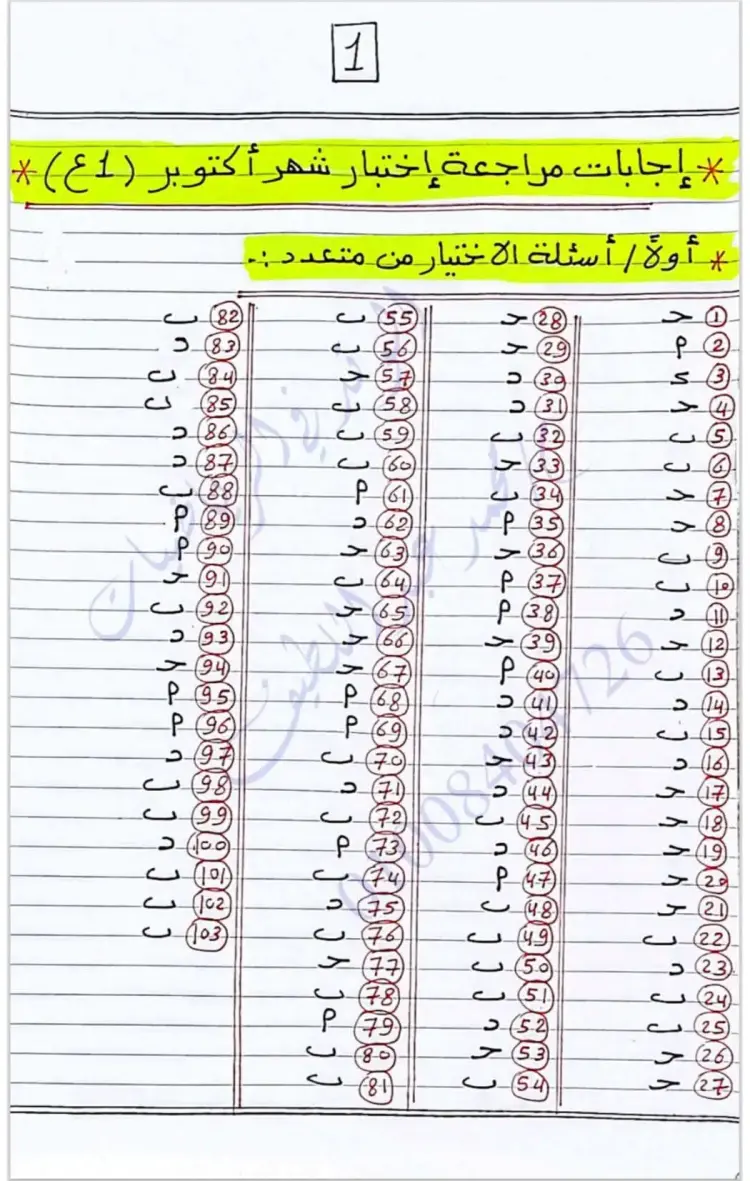 1
* إجابات مراجعة إختبار شهر أكتوبر (1ع) *
* أولاً / أسئلة الاختيار من متعدد :-
1 حـ
2 أ
3 د
4 حـ
5 ب
6 ب
7 حـ
8 حـ
9 ب
10 ب
11 د
12 حـ
13 ب
14 د
15 ب
16 د
17 حـ
18 حـ
19 حـ
20 حـ
21 حـ
22 ب
23 د
24 ب
25 ب
26 حـ
27 حـ
28 حـ
29 حـ
30 د
31 د
32 ب
33 حـ
34 ب
35 أ
36 حـ
37 أ
38 أ
39 حـ
40 أ
41 د
42 د
43 حـ
44 د
45 ب
46 د
47 أ
48 ب
49 ب
50 ب
51 ب
52 د
53 حـ
54 ب
55 ب
56 ب
57 حـ
58 ب
59 ب
60 ب
61 أ
62 د
63 حـ
64 ب
65 حـ
66 حـ
67 حـ
68 أ
69 أ
70 ب
71 د
72 ب
73 أ
74 ب
75 د
76 ب
77 حـ
78 ب
79 أ
80 ب
81 ب
82 ب
83 د
84 ب
85 ب
86 د
87 د
88 ب
89 أ
90 أ
91 حـ
92 ب
93 د
94 حـ
95 أ
96 أ
97 د
98 ب
99 ب
100 د
101 ب
102 ب
103 ب